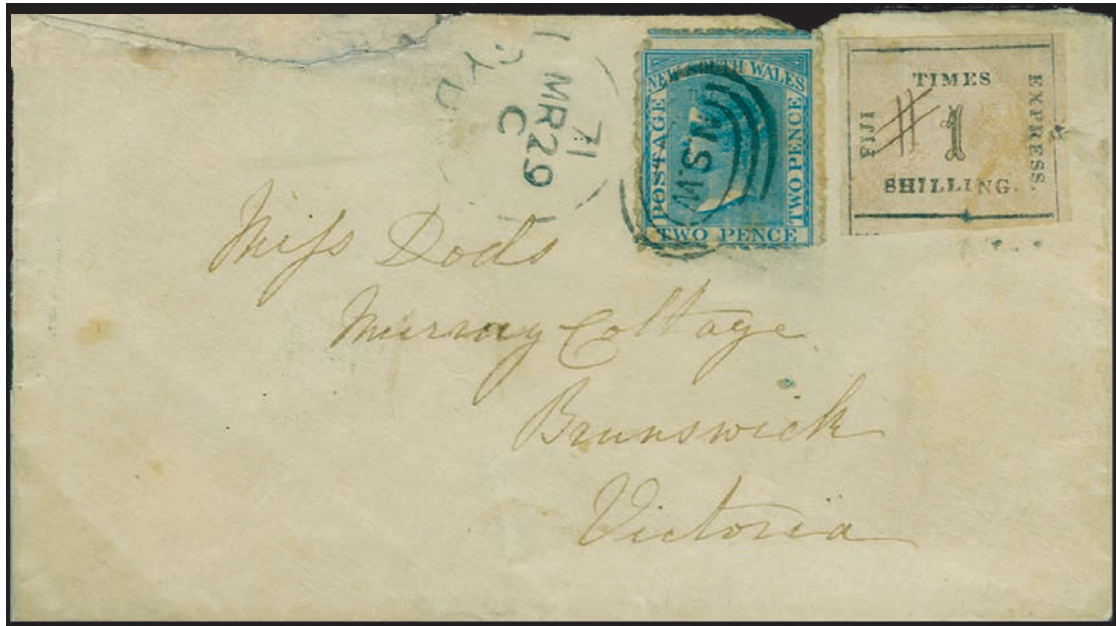 SYD
MR29
C
71
NEW SOUTH WALES
POSTAGE
TWO PENCE
TWO PENCE
NSW
TIMES
FIJI
1
EXPRESS.
SHILLING.
Miss Dods
Murray Cottage
Brunswick
Victoria